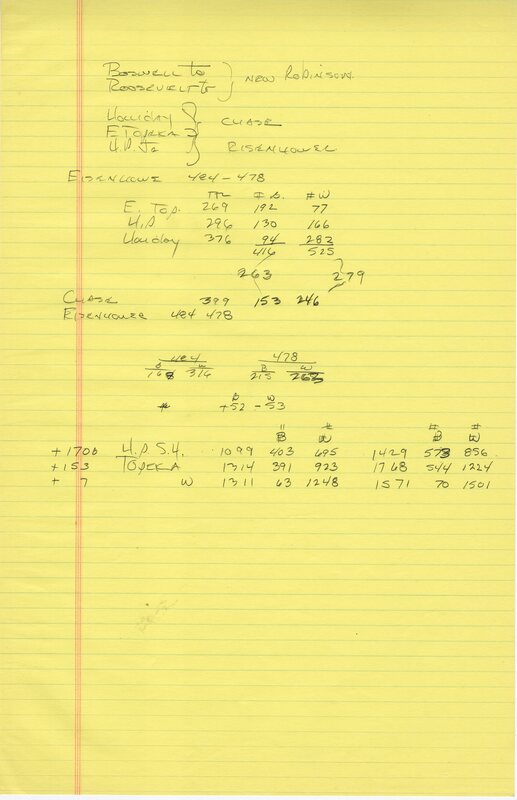 BOSWELL to } NEW ROBINSON
ROOSEVELT to
HOLIDAY } CHASE
E TOPEKA
H.P. to } EISENHOWER
EISENHOWE 484 - 478
TTL # B. # W
E. TOP. 269 192 77
H.P. 296 130 166
HOLIDAY 376 94 282
416 525
263 279
CHASE 399 153 246
EISENHOWER 484 478
484 478
B W B W
168 316 215 263
B W
+52 - 53
# # # #
B W B W
+ 170 H.P. S.H. 1099 403 695 1429 573 856
+ 153 TOPEKA 1314 391 923 1768 544 1224
+ 7 W 1311 63 1248 1571 70 1501